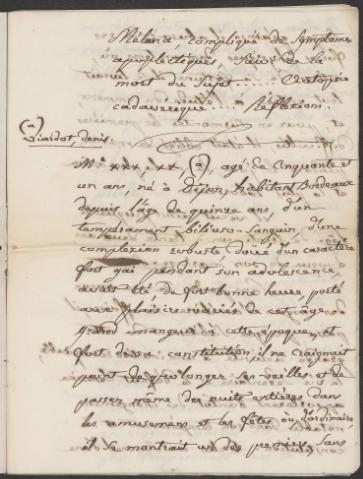 Mélœna, compliqué de symptomes
apoplectiques, suivi de la
mort du sujet..... Autopsie
cadavérique.... Réflexions.
(*)
Viardot, denis.
Mr xxx, xx (*), agé de cinquante et
un ans, né à Dijon, habitant Bordeaux
depuis l'âge de quinze ans, d'un
tempérament bilioso-Sanguin, d'une
complexion robuste doué d'un caractère
fort gai pendant son adolescence
avait été de fort bonne heure, porté
aux plaisirs variés de cet âge.
grand mangeur à cette époque, et
fort de sa constitution, il ne craignait
point de prolonger ses veilles et de
passer même des nuits entières dans
les amusemens et les fêtes où d'ordinaire
il se montrait un des premiers, Sans